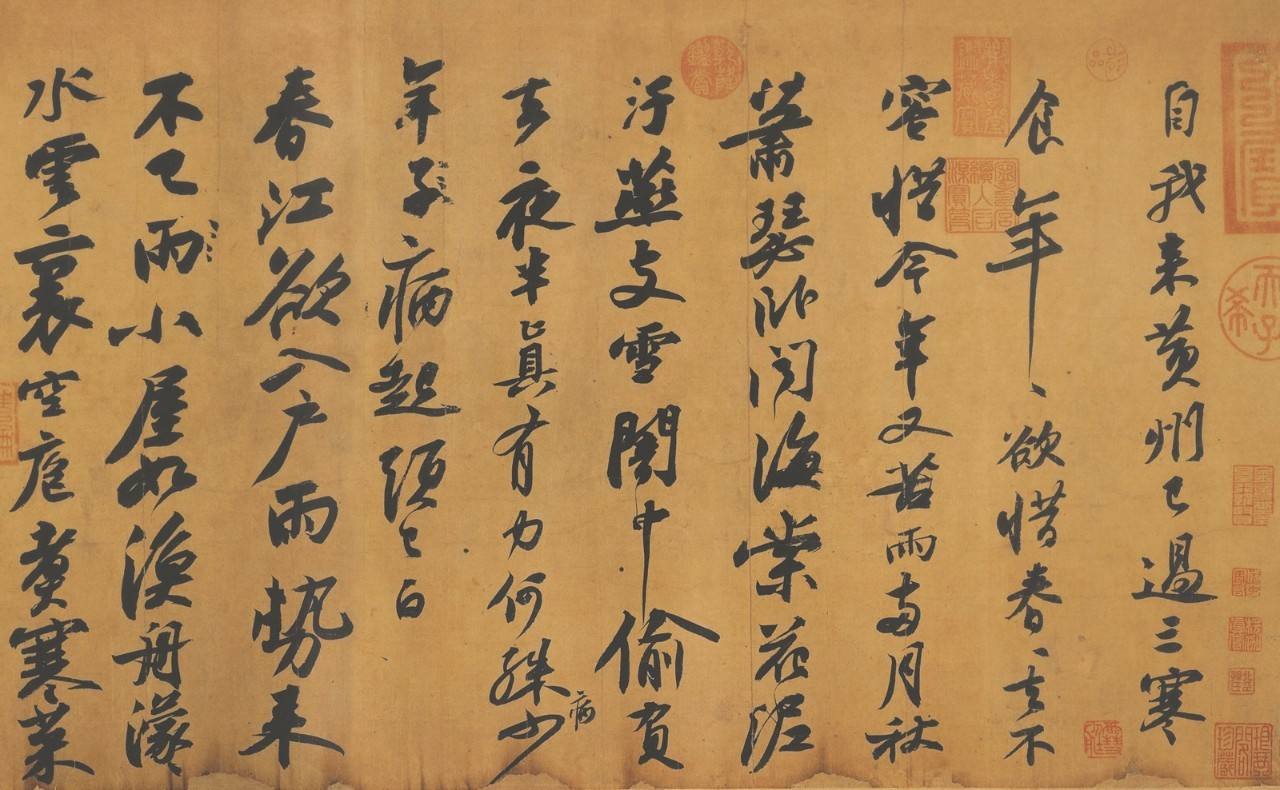 自我来黄州已過三寒
食年、欲惜春、去不
容惜今年又苦雨兩月秋
蕭瑟卧聞海棠花泥
汙燕支雪闇中偷負
去夜半真有力何殊少病
年子病起頭已白
春江欲入户雨勢来
不已雨小屋如漁舟濛
水雲裏空庖煑寒菜